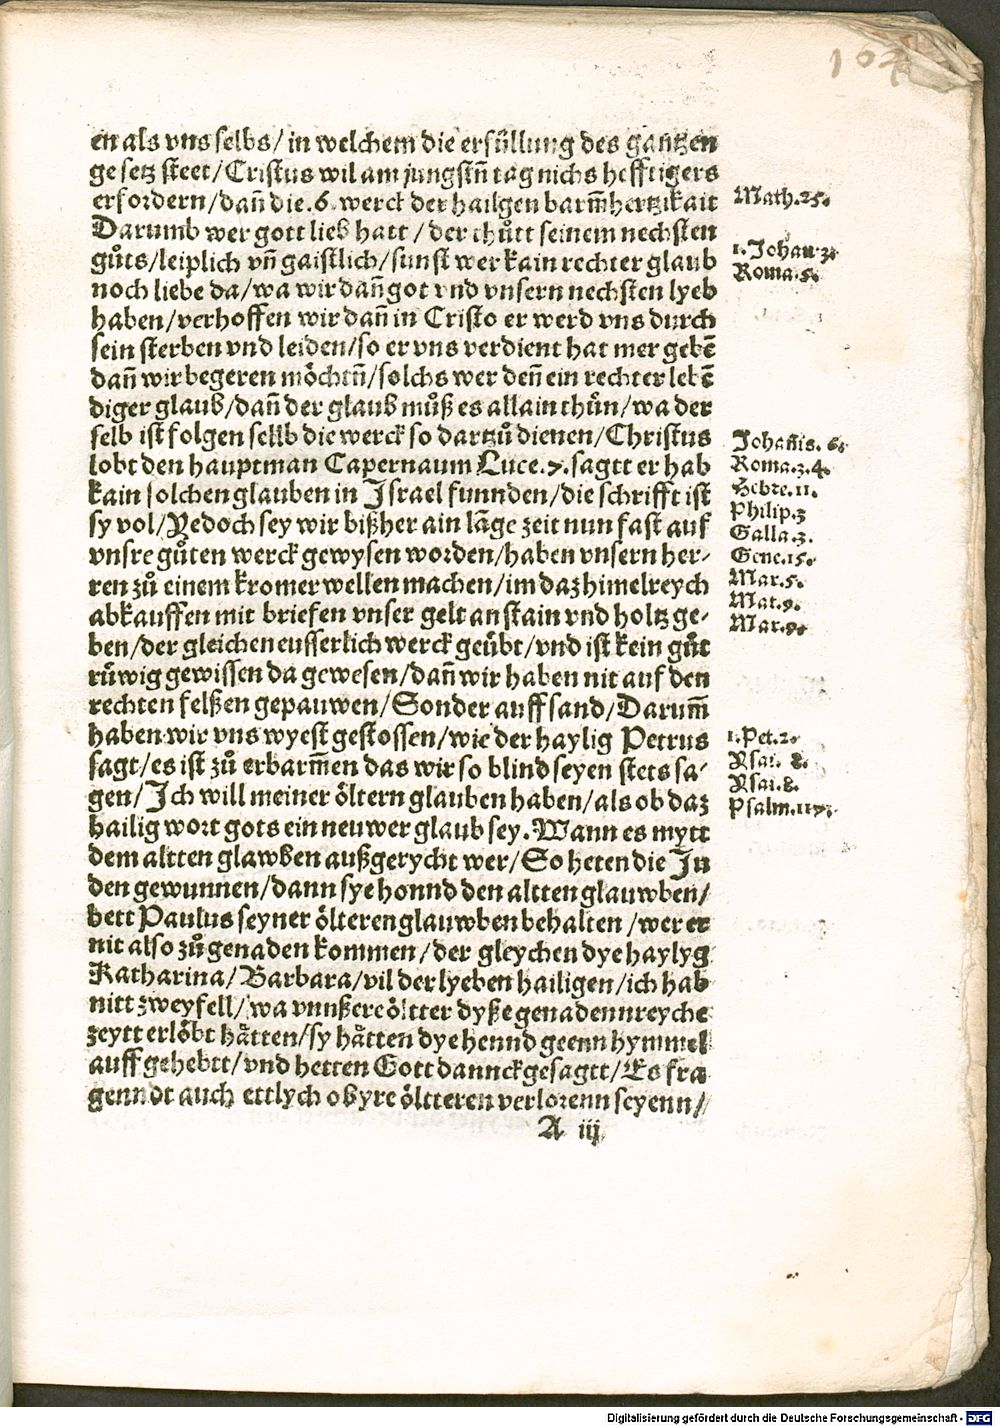 164
en als vns selbs/ in welchem die erfüllung des gantzen
gesetz steet/ Cristus wil am jungstn̄ tag nichs hefftigers
erfordern/ dañ die .6. werck der hailgen barm̄hertzikait
Math.25.
Darumb wer gott lieb hatt/ der thůtt seinem nechsten
gůts/ leiplich vn̄ gaistlich/ sunst wer kain rechter glaub
1. Johan.3.
Roma.5.
noch liebe da/ wa wir dañ got vnd vnsern nechsten lyeb
haben/ verhoffen wir dañ in Cristo er werd vns durch
sein sterben vnd leiden/ so er vns verdient hat mer gebē
dañ wir begeren möchtn̄/ solchs wer deñ ein rechter lebē
diger glaub/ dañ der glaub můß es allain thůn/ wa der
selb ist folgen sellb die werck so dartzů dienen/ Christus
Johan̄is. 6.
lobt den hauptman Capernaum Luce.7. sagtt er hab
Roma.3.4.
kain solchen glauben in Israel funnden/ die schrifft ist
Hebre.11.
sy vol/ Yedoch sey wir bißher ain lāge zeit nun fast auf
Philip.3
vnsre gůten werck gewysen worden/ haben vnsern her-
Galla.3.
Gene.15.
ren zů einem kromer wellen machen/ im daz himelreych
Mar.5.
abkauffen mit briefen vnser gelt an stain vnd holtz ge-
Mat.9.
Mar.9.
ben/ der gleichen eusserlich werck geübt/ vnd ist kein gůt
růwig gewissen da gewesen/ dañ wir haben nit auf den
rechten felßen gepauwen/ Sonder auff sand/ Darum̄
haben wir vns wyest gestossen/ wie der haylig Petrus
1. Pet.2.
sagt/ es ist zů erbarm̄en das wir so blind seyen stets sa-
Esai. 8.
Esai.8.
gen/ Ich will meiner öltern glauben haben/ als ob daz
Psalm.117.
hailig wort gots ein neuwer glaub sey. Wann es mytt
dem altten glawben außgerycht wer/ So heten die Ju
den gewunnen/ dann sye honnd den altten glauwben/
hett Paulus seyner ölteren glauwben behalten/ wer er
nit also zů genaden kommen/ der gleychen dye haylyg
Katharina/ Barbara/ vil der lyeben hailigen/ ich hab
nitt zweyfell/ wa vnnßere öltter dyße genadennreyche
zeytt erlöbt hätten/ sy hätten dye hennd geenn hymmel
auff gehebtt/ vnd hetten Gott dannck gesagtt/ Es fra
genndt auch ettlych ob yre öltteren verlorenn seyenn/
A iij
Digitalisierung gefördert durch die Deutsche Forschungsgemeinschaft - DFG